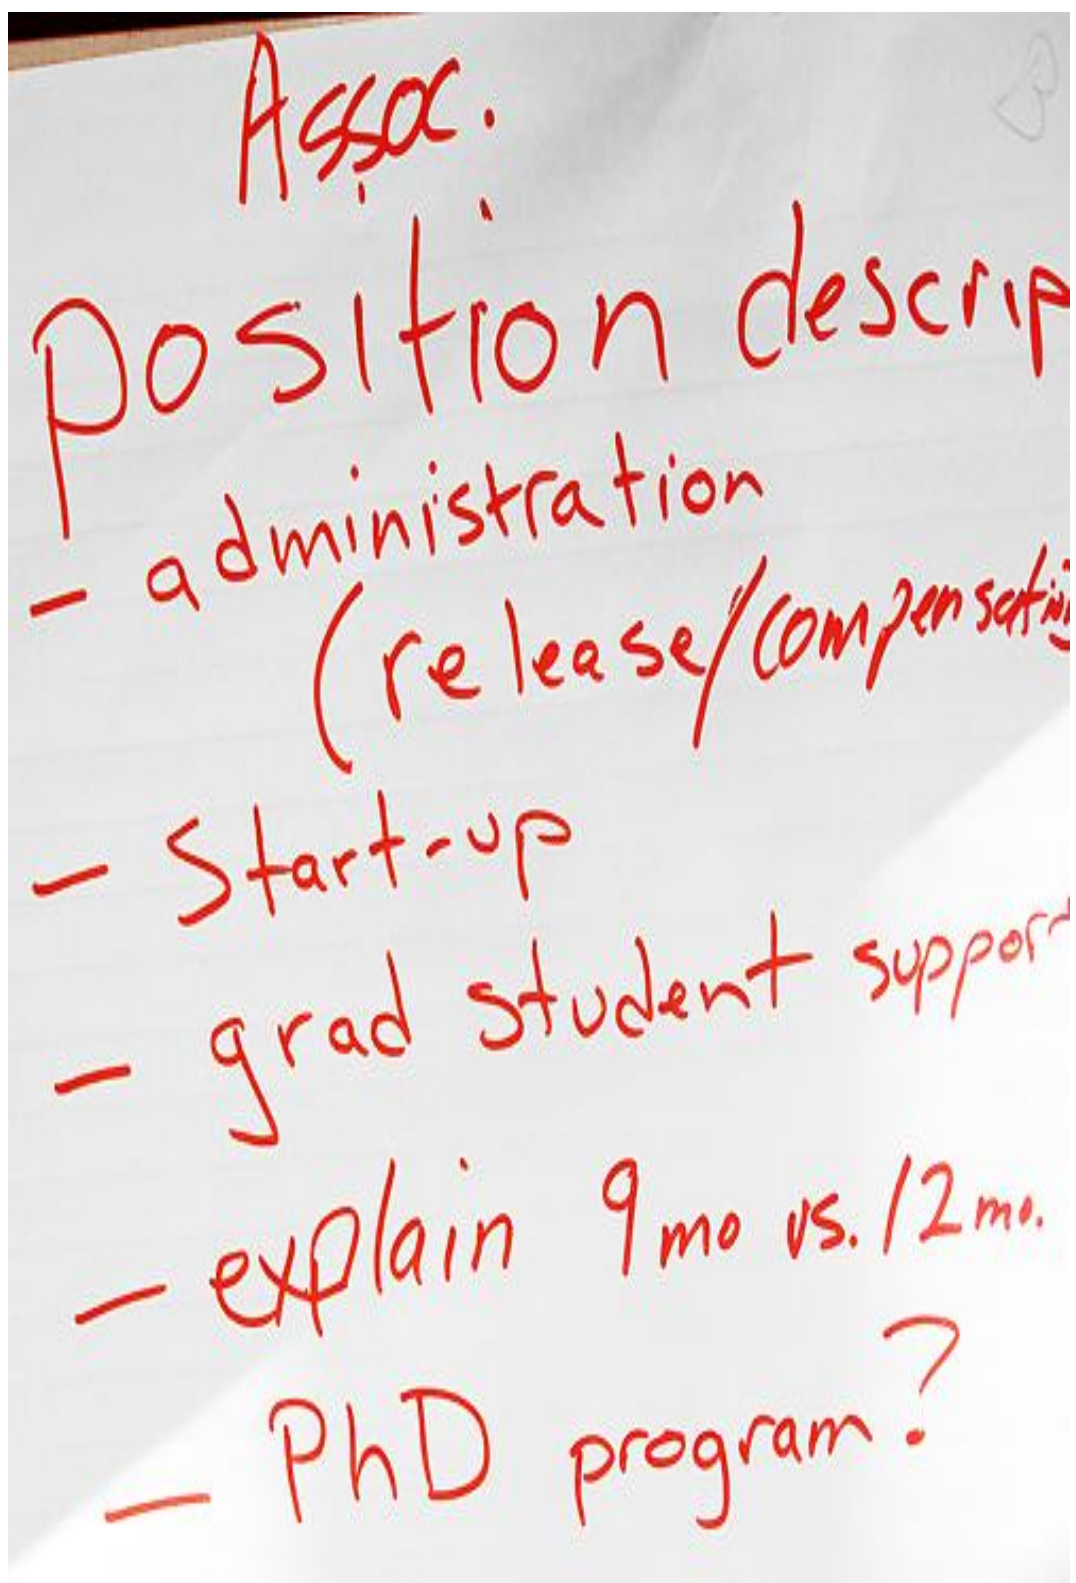 Assoc.
position descrip
- administration
(release/compensation
- Start-up
- grad student support
- explain 9mo vs. 12mo.
- PhD program?